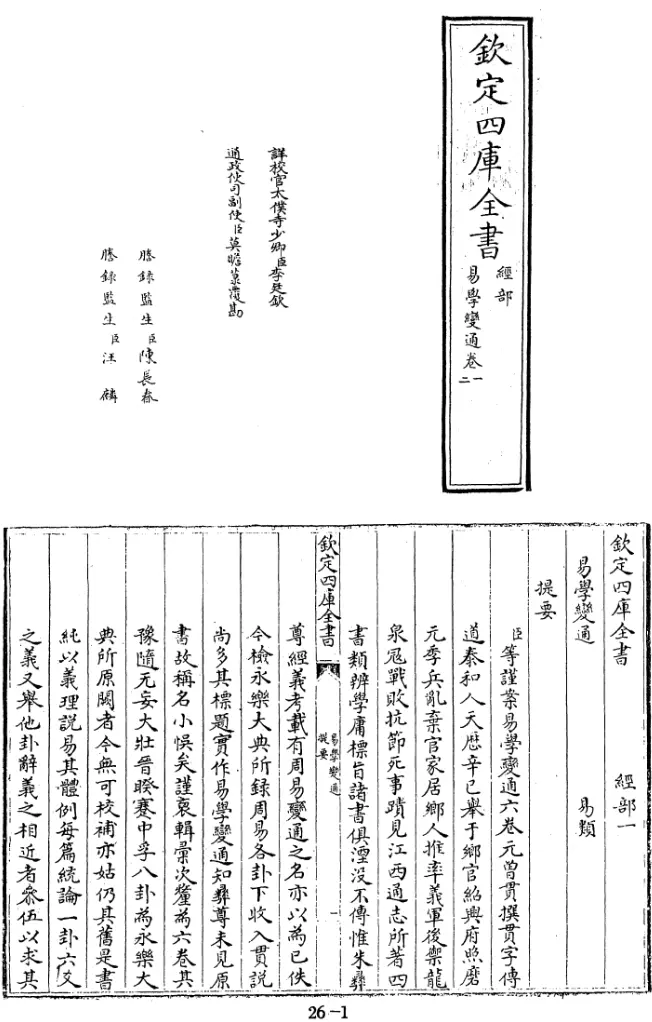 欽定四庫全書
經部
易學變通卷一
二
詳校官太僕寺少卿臣李廷欽
通政使司副使臣莫瞻菉覆勘
謄錄監生臣陳長春
謄錄監生臣汪麟
欽定四庫全書 經部一
易學變通 易類
提要
臣等謹案易學變通六卷元曾貫撰貫字傳
道泰和人天厯辛巳舉于鄉官紹興府照磨
元季兵亂棄官家居鄉人推率義軍後禦龍
泉冦戰敗抗節死事蹟見江西通志所著四
書類辨學庸標旨諸書俱湮没不傳惟朱彛
欽定四庫全書
易學變通
提要
一
尊經義考載有周易變通之名亦以為已佚
今檢永樂大典所錄周易各卦下收入貫説
尚多其標題實作易學變通知彛尊未見原
書故稱名小悞矣謹裒輯彙次釐為六卷其
豫隨无妄大壯晉睽蹇中孚八卦為永樂大
典所原闕者今無可校補亦姑仍其舊是書
純以義理説易其體例每篇統論一卦六爻
之義又舉他卦辭義之相近者叅伍以求其
26-1